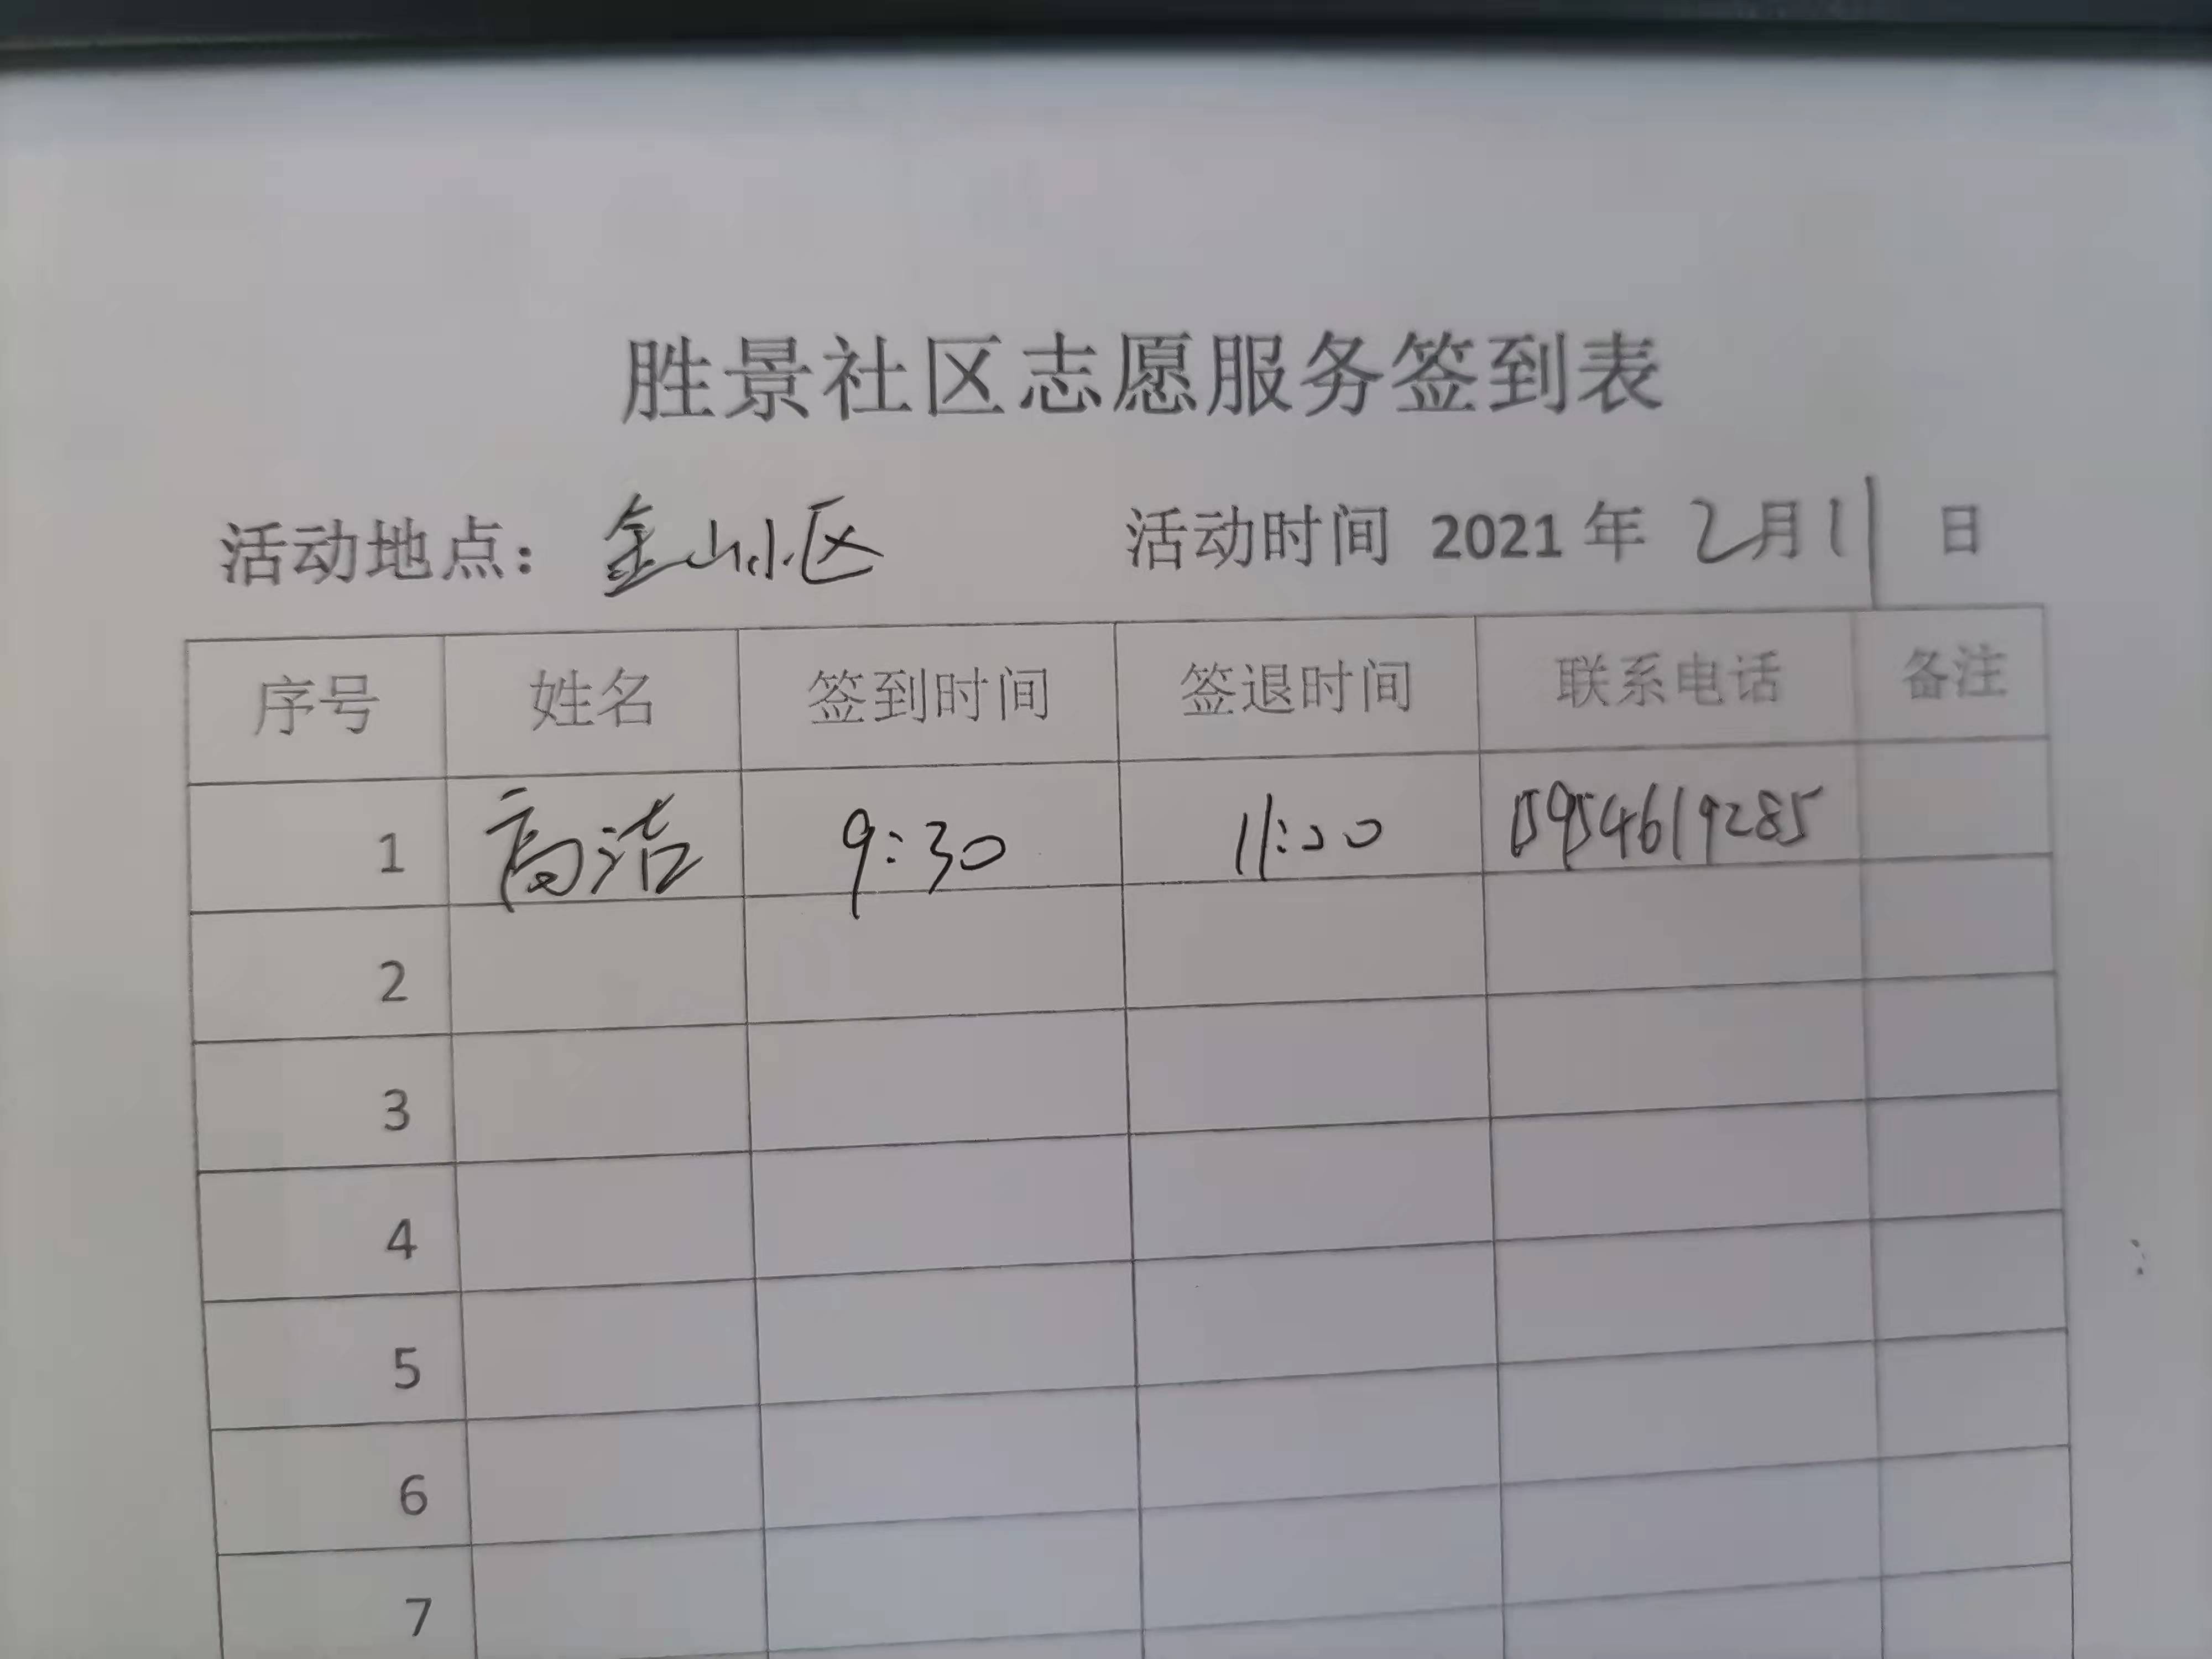 胜景社区志愿服务签到表
活动地点：金山小区 活动时间 2021 年 2月11日
序号 姓名 签到时间 签退时间 联系电话 备注
1 高洁 9:30 11:00 15954619285
2
3
4
5
6
7